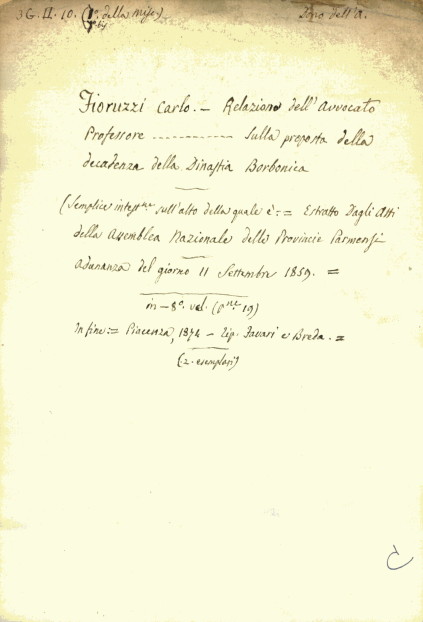 3G. II. 10. (1º della Misc.)
bis
Dono dell'A.
Fioruzzi Carlo. – Relazione dell'Avvocato
Professore ------------ sulla proposta della
decadenza della Dinastia Borbonica
(Semplice intest.ne sull'alto della quale è: = Estratto Dagli Atti
della Assemblea Nazionale delle Provincie Parmensi
adunanza del giorno 11 Settembre 1859. =
in – 8º. vol. (p.ne 19)
In fine: = Piacenza, 1874 – Tip. Favari e Breda. =
(2. esemplari)
C